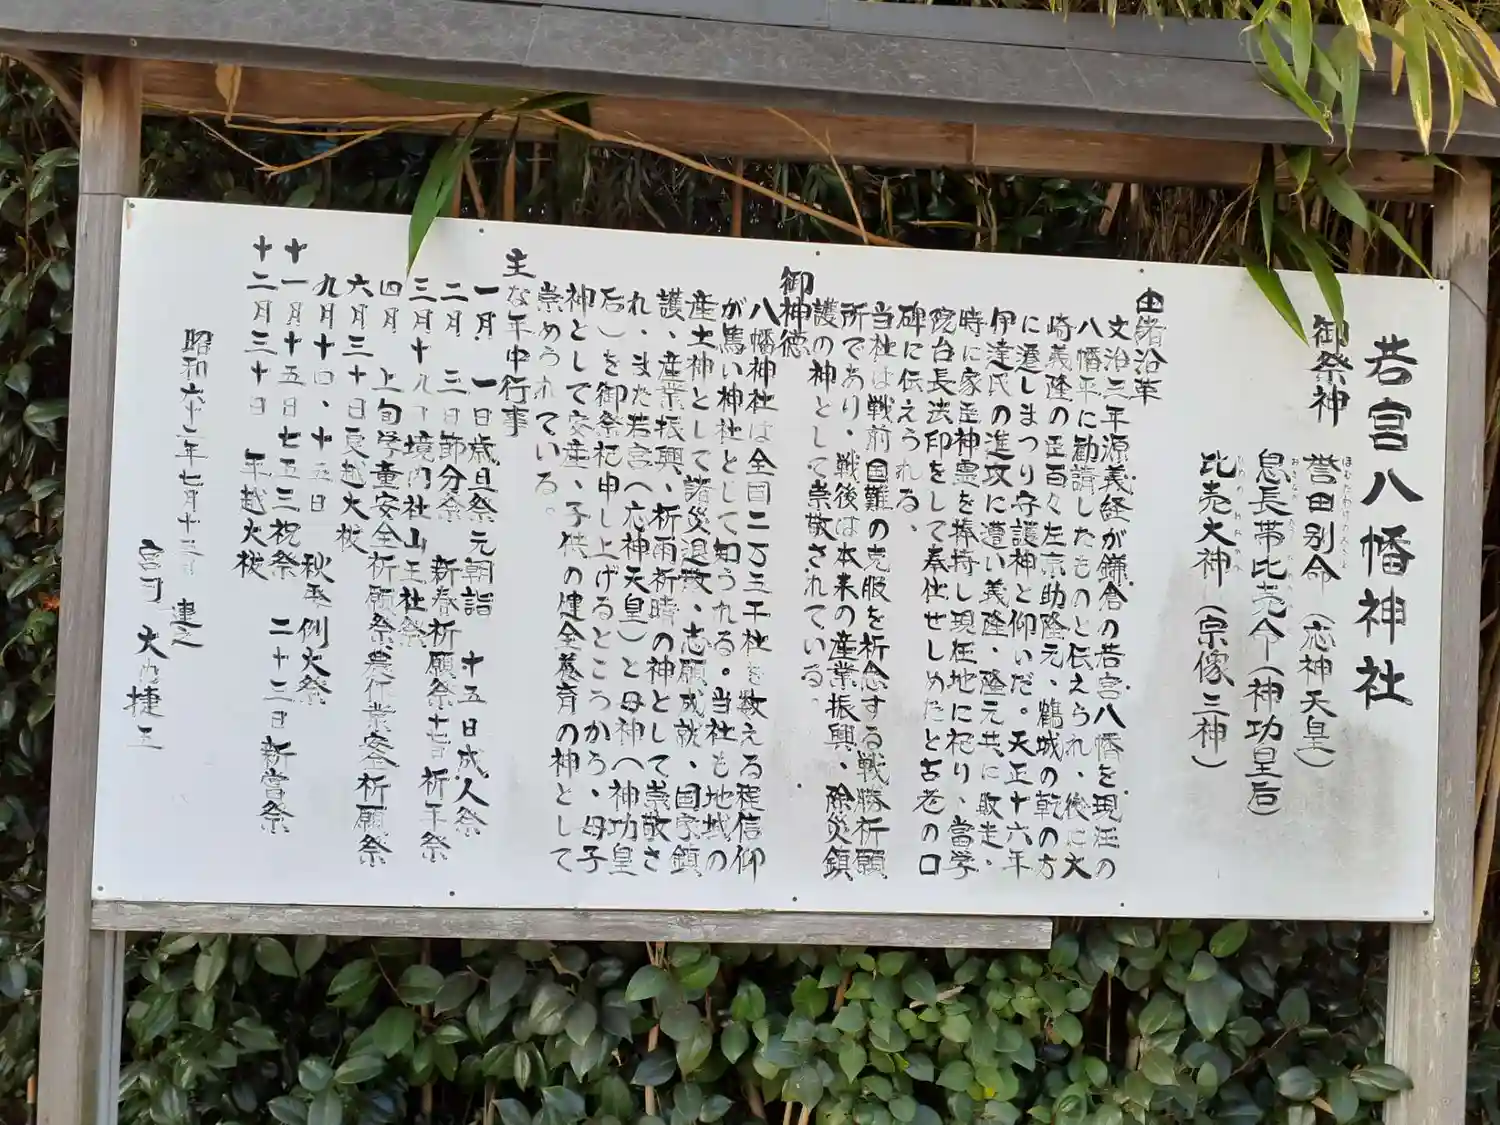 若宮八幡神社
御祭神
誉田別命（応神天皇）
息長帯比売命（神功皇后）
比売大神（宗像三神）
由緒沿革
文治二年源義経が鎌倉の若宮八幡を現在の
八幡平に勧請したものと伝えられ、後に大
崎義隆の臣百々左京助隆元、鶴城の乾の方
に遷しまつり守護神と仰いだ。天正十六年
伊達氏の進攻に遭い義隆、隆元共に敗走、
時に家臣神霊を捧持し現在地に祀り、當学
院台長法印をして奉仕せしめたと古老の口
碑に伝えられる。
当社は戦前国難の克服を祈念する戦勝祈願
所であり、戦後は本来の産業振興、除災鎮
護の神として崇敬されている。
御神徳
八幡神社は全国二万三千社を数える程信仰
が篤い神社として知られる。当社も地域の
産土神として諸災退散、志願成就、国家鎮
護、産業振興、祈雨祈晴の神として崇敬さ
れ、また若宮（応神天皇）と母神（神功皇
后）を御祭祀申し上げるところから、母子
神として安産、子供の健全養育の神として
崇められている。
主な年中行事
一月　一日歳旦祭元朝詣　十五日成人祭
二月　三日節分祭　新春祈願祭十七日祈年祭
三月十九日境内社山王社祭
四月　上旬学童安全祈願祭農作業安全祈願祭
六月三十日夏越大祓
九月十四、十五日　秋季例大祭
十一月十五日七五三祝祭　二十三日新嘗祭
十二月三十日　年越大祓
昭和六十二年七月十五日　建之
宮司　大内捷王